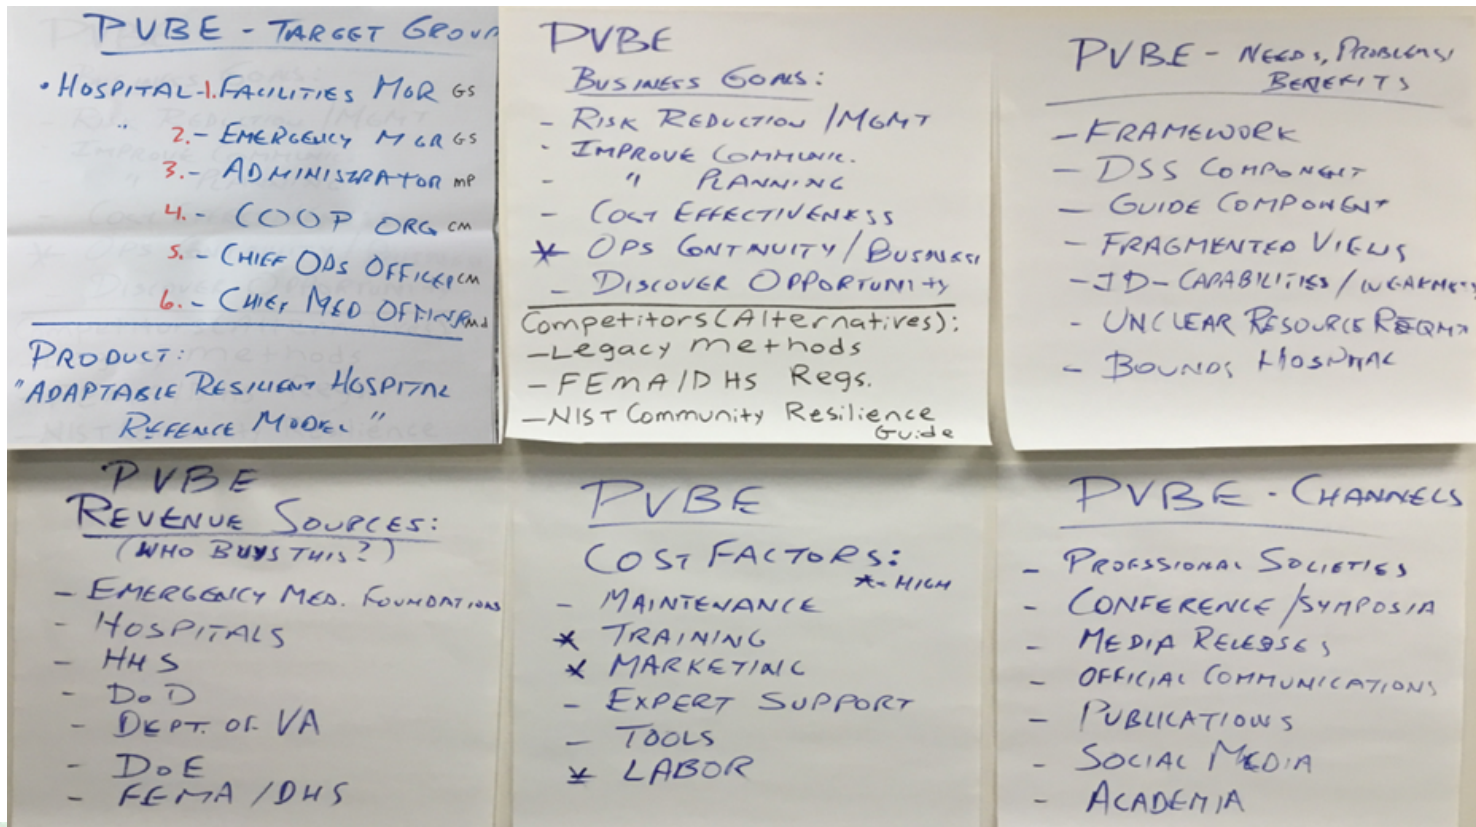 PVBE - TARGET GROUP
• HOSPITAL - 1. FACILITIES MGR GS
" 2. - EMERGENCY MGR GS
3. - ADMINISTRATOR MP
4. - COOP ORG CM
5. - CHIEF OPS OFFICER CM
6. - CHIEF MED OFFICER md
PRODUCT:
"ADAPTABLE RESILIENT HOSPITAL
REFENCE MODEL"
PVBE
BUSINESS GOALS:
- RISK REDUCTION / MGMT
- IMPROVE COMMUNIC.
- " PLANNING
- COST EFFECTIVENESS
* OPS CONTINUITY / BUSINESS
- DISCOVER OPPORTUNITY
Competitors (Alternatives):
- Legacy methods
- FEMA/DHS Regs.
- NIST Community Resilience
Guide
PVBE - NEEDS, PROBLEMS,
BENEFITS
- FRAMEWORK
- DSS COMPONENT
- GUIDE COMPONENT
- FRAGMENTED VIEWS
- ID - CAPABILITIES / WEAKNESS
- UNCLEAR RESOURCE REQMT
- BOUNDS HOSPITAL
PVBE
REVENUE SOURCES:
(WHO BUYS THIS?)
- EMERGENCY MED. FOUNDATIONS
- HOSPITALS
- HHS
- DoD
- DEPT. OF VA
- DoE
- FEMA / DHS
PVBE
COST FACTORS:
*- HIGH
- MAINTENANCE
* TRAINING
* MARKETING
- EXPERT SUPPORT
- TOOLS
* LABOR
PVBE - CHANNELS
- PROFSSIONAL SOCIETIES
- CONFERENCE / SYMPOSIA
- MEDIA RELEASES
- OFFICIAL COMMUNICATIONS
- PUBLICATIONS
- SOCIAL MEDIA
- ACADEMIA